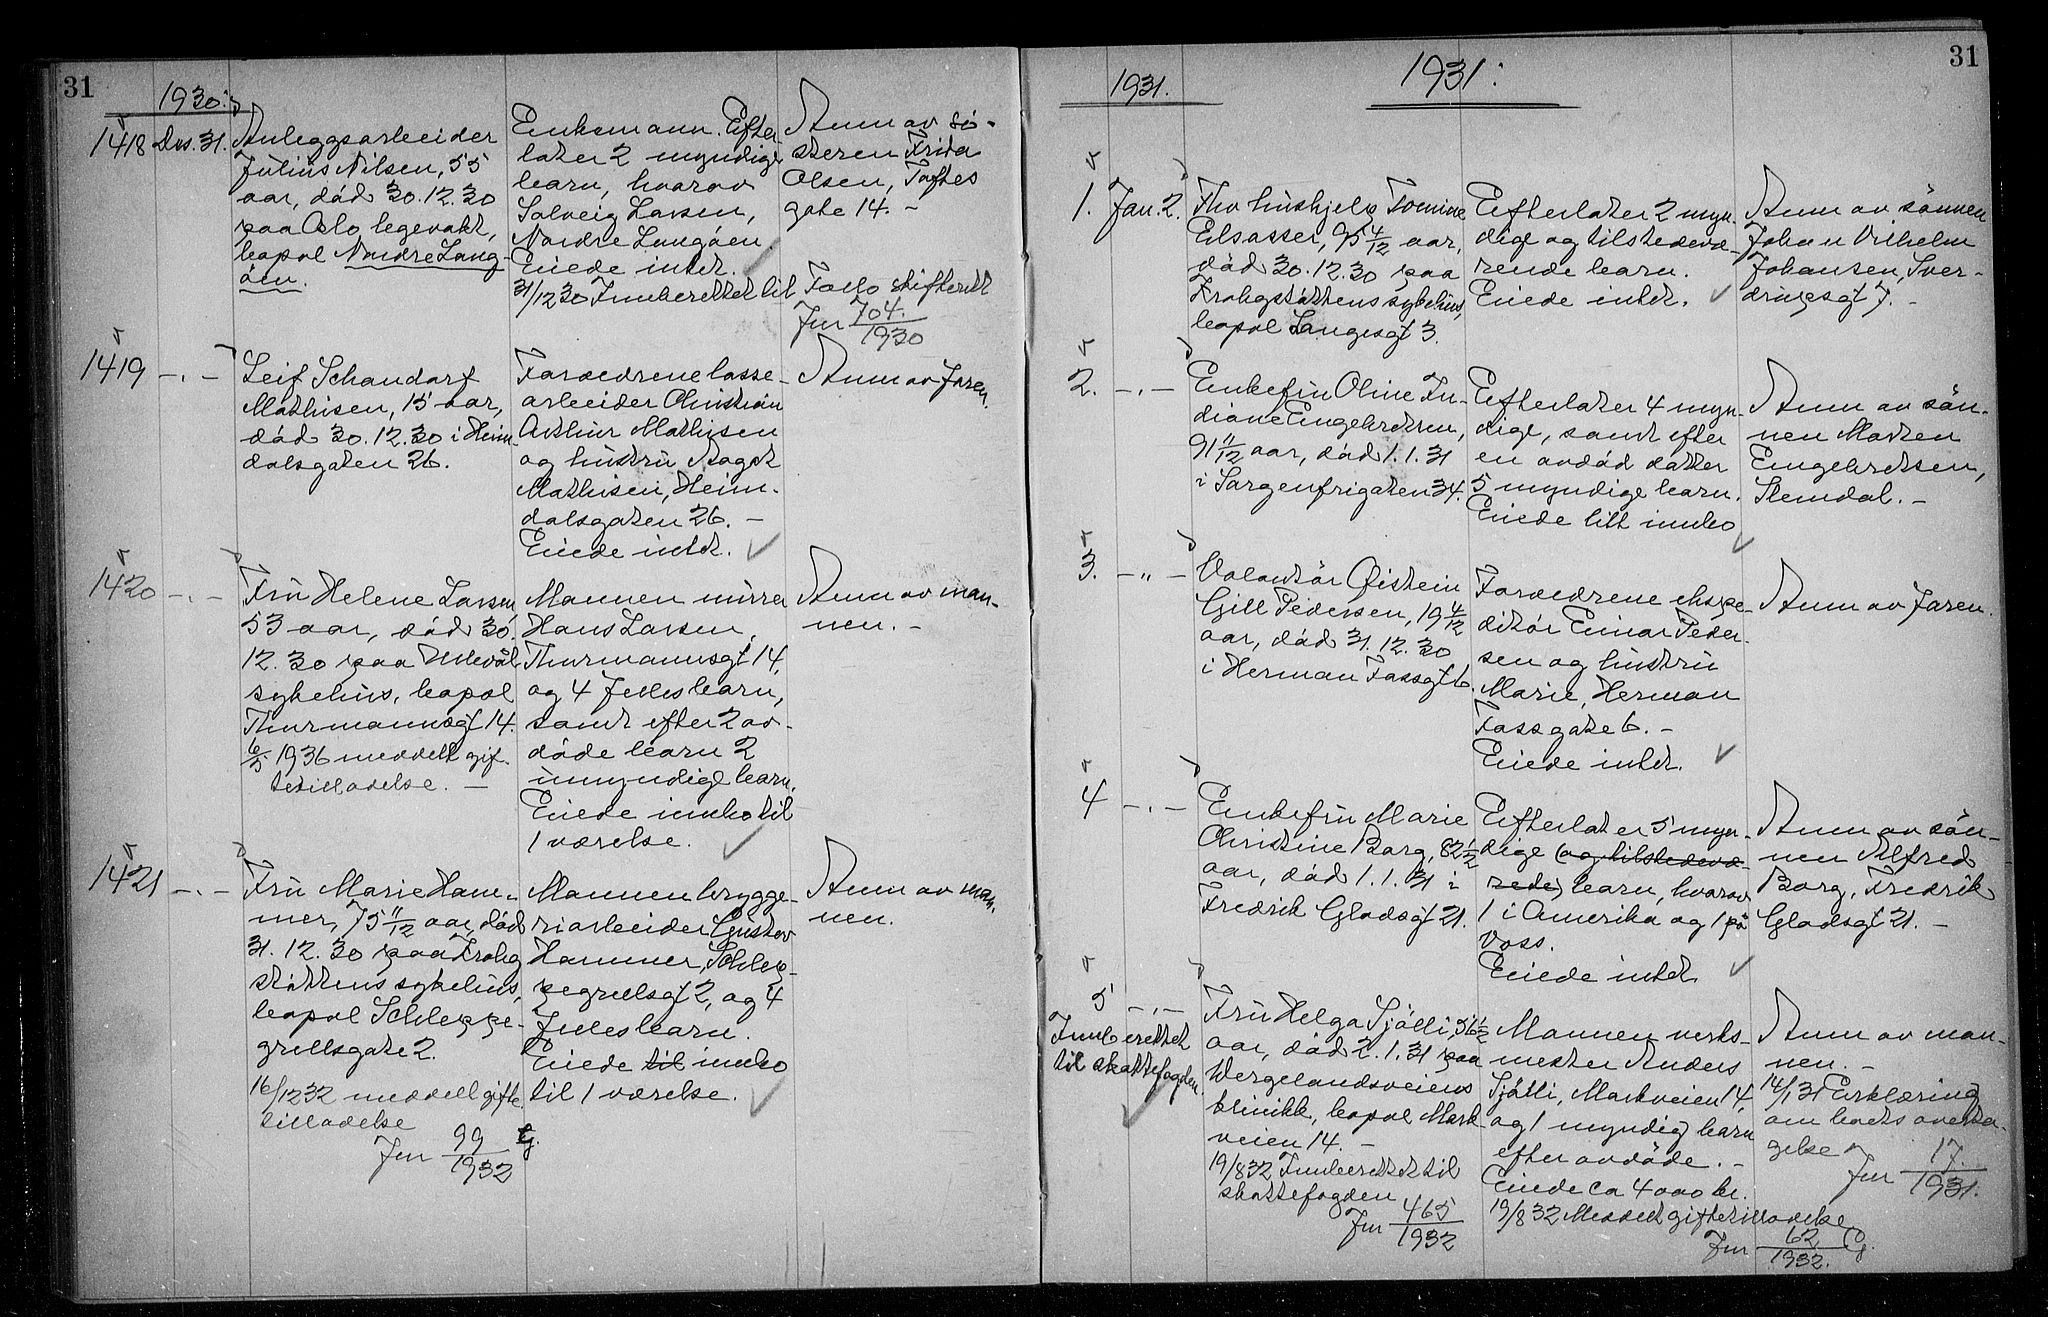 31
1930:
1418 Des. 31. Anleggsarbeider
Julius Nilsen, 55
aar, död 30.12.30
paa Oslo legevakt,
bopæl Nordre Lang-
öen.
Enkemann. Efter
later 2 myndige
barn, hvorav
Solveig Larsen,
Nordre Langöen.
Eiede intet.
31/12 30 Innberettet til Follo skifterett
Jnr 704/1930
Anm av sö-
steren Frida
Olsen, Toftes
gate 14. -
1419 -.- Leif Schandorf
Mathisen, 15 aar,
död 30.12.30 i Heim
dalsgaten 26.
Forældrene losse-
arbeider Christian
Arthur Mathisen
og hustru Magot
Mathisen, Heim-
dalsgaten 26. -
Eiede intet.
Anm av faren.
1420 -.- Fru Helene Larsen
53 aar, död 30.
12.30 paa Ullevål
sykehus, bopæl
Thurmannsgt 14.
6/5 1936 meddelt gif-
tetilladelse. -
Mannen murer
Hans Larsen,
Thurmannsgt 14,
og 4 felles barn,
samt efter 2 av-
döde barn 2
umyndige barn.
Eiede innbo til
1 værelse.
Anm av man-
nen. -
1421 -.- Fru Marie Ham-
mer, 75 11/12 aar, död
31.12.30 paa Krohg
støttens sykehus,
bopæl Schleppe-
grellsgate 2.
16/12 32 meddelt gifte
tilladelse
Jnr 99/1932 G.
Mannen brygge-
riarbeider Gustav
Hammer, Schlep-
pegrellsgt 2, og 4
felles barn.
Eiede til innbo
til 1 værelse.
Anm av man-
nen.
1931.
1931:
31
1. Jan. 2. Fhv hushjelp Tomine
Elsasser, 95 4/12 aar,
död 30.12.30 paa
Krohgstøttens sykehus,
bopæl Langesgt 3.
Efterlater 2 myn-
dige og tilstedevæ-
rende barn.
Eiede intet.
Anm av sönnen
Johan Vilhelm
Johansen, Sver-
drupsgt 7. -
2. -.- Enkefru Oline In-
diane Engebretsen,
91 11/12 aar, död 1.1.31
i Sorgenfrigaten 34.
Efterlater 4 myn-
dige, samt efter
en avdöd datter
5 myndige barn.
Eiede litt innbo
Anm av sön-
nen Morten
Engebretsen,
Slemdal. -
3. -"- Volontör Øistein
Gill Pedersen, 19 4/12
aar, död 31.12.30
i Herman Fossgt 6.
Forældrene ekspe-
ditör Einar Peder-
sen og hustru
Marie, Herman
Fossgate 6. -
Eiede intet.
Anm av faren.
4 -.- Enkefru Marie
Christine Borg, 82 1/2
aar, död 1.1.31 i
Fredrik Gladsgt 21.
Efterlater 5 myn-
dige (og tilstedevæ-
rede) barn, hvorav
1 i Amerika og 1 på
Voss.
Eiede intet
Anm av sön-
nen Alfred
Borg, Fredrik
Gladsgt 21. -
5 -.-
Innberettet
til skattefogden
Fru Helga Sjölli, 56 1/2
aar, död 2.1.31 paa
Wergelandsveiens
klinikk, bopæl Mark
veien 14. -
19/8 32 Innberettet til
skattefogden
Jnr 465/1932
Mannen verks-
mester Anders
Sjölli, Markveien 14,
og 1 myndig barn
efter avdöde. -
Eiede ca 4000 kr.
19/8 32 Meddelt giftetilladelse
Jnr 62/1932. G.
Anm av man-
nen -
14/1 31 Erklæring
om boets overta-
gelse
Jnr 17/1931.